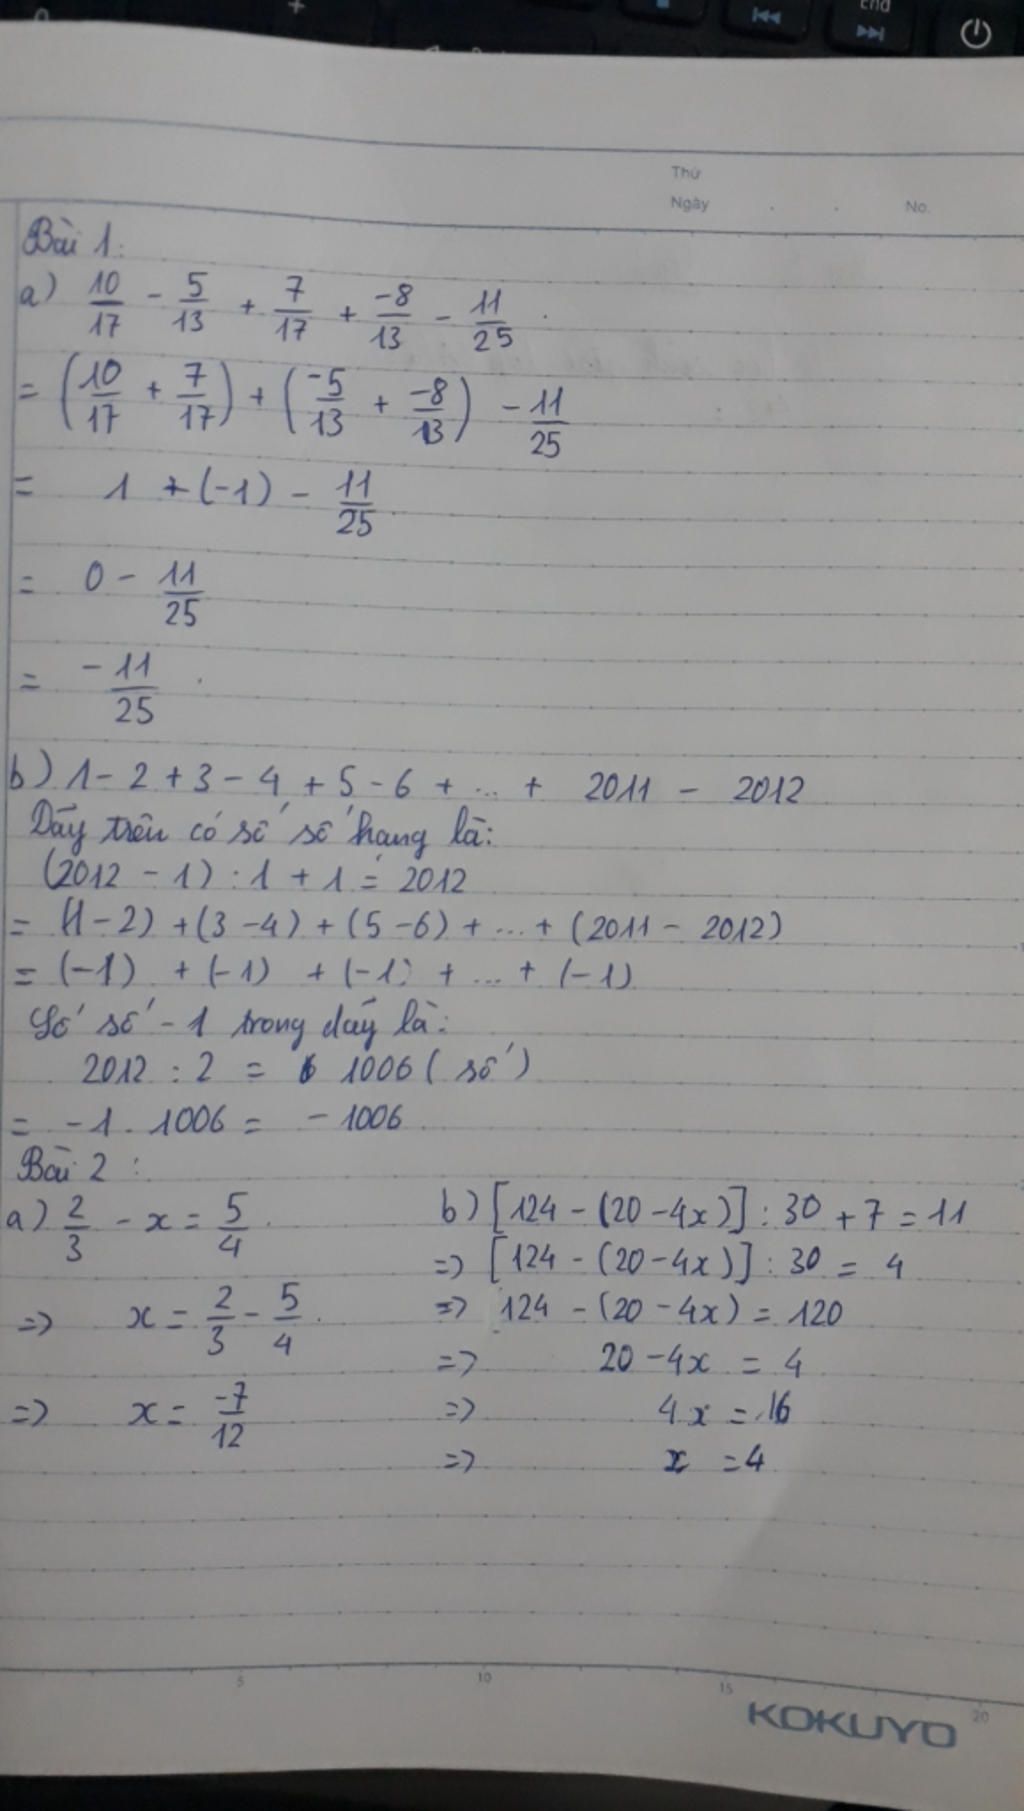 End
Thứ
Ngày . . No.
Bài 1:
a) 10/17 - 5/13 + 7/17 + -8/13 - 11/25
= (10/17 + 7/17) + (-5/13 + -8/13) - 11/25
= 1 + (-1) - 11/25
= 0 - 11/25
= -11/25
b) 1 - 2 + 3 - 4 + 5 - 6 + ... + 2011 - 2012
Dãy trên có số số hạng là:
(2012 - 1) : 1 + 1 = 2012
= (1 - 2) + (3 - 4) + (5 - 6) + ... + (2011 - 2012)
= (-1) + (-1) + (-1) + ... + (-1)
Số số -1 trong dãy là:
2012 : 2 = 1006 (số)
= -1 . 1006 = -1006
Bài 2 :
a) 2/3 - x = 5/4
=> x = 2/3 - 5/4
=> x = -7/12
b) [124 - (20 - 4x)] : 30 + 7 = 11
=> [124 - (20 - 4x)] : 30 = 4
=> 124 - (20 - 4x) = 120
=> 20 - 4x = 4
=> 4x = 16
=> x = 4
5 10 15 20
KOKUYO